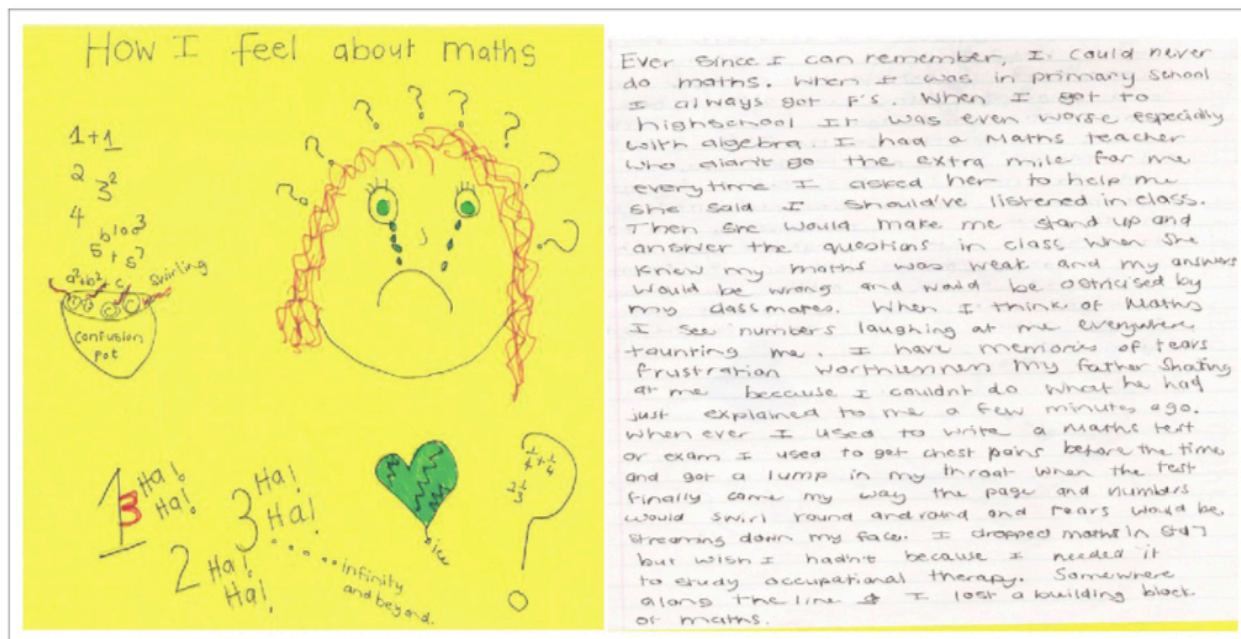 How I feel about maths
? ? ? ? ? ? ? ?
1+1
2
3²
4
5 + 5⁷
a²+b²+c
swirling
confusion
pot
1 Ha!
Ha!
3 Ha!
Ha!
2 Ha!
Ha!
infinity
and beyond.
ice
¼+¼
Ever since I can remember, I could never
do maths. When I was in primary school
I always got F's. When I got to
highschool It was even worse especially
with algebra. I had a Maths teacher
who didn't go the extra mile for me
everytime I asked her to help me
she said I should've listened in class.
Then she would make me stand up and
answer the questions in class when she
knew my maths was weak and my answers
would be wrong and would be ostricised by
my classmates. When I think of Maths
I see numbers laughing at me everywhere
taunting me. I have memories of tears
frustration my father
at me because I couldnt do what he had
just explained to me a few minutes ago.
When ever I used to write a maths test
or exam I used to get chest pains before the time
and got a lump in my throat when the test
finally came my way the page and numbers
would swirl round and round and tears would be
streaming down my face. I dropped maths in std 7
but wish I hadn't because I needed it
to study occupational therapy. Somewhere
along the line I lost a building block
of maths.